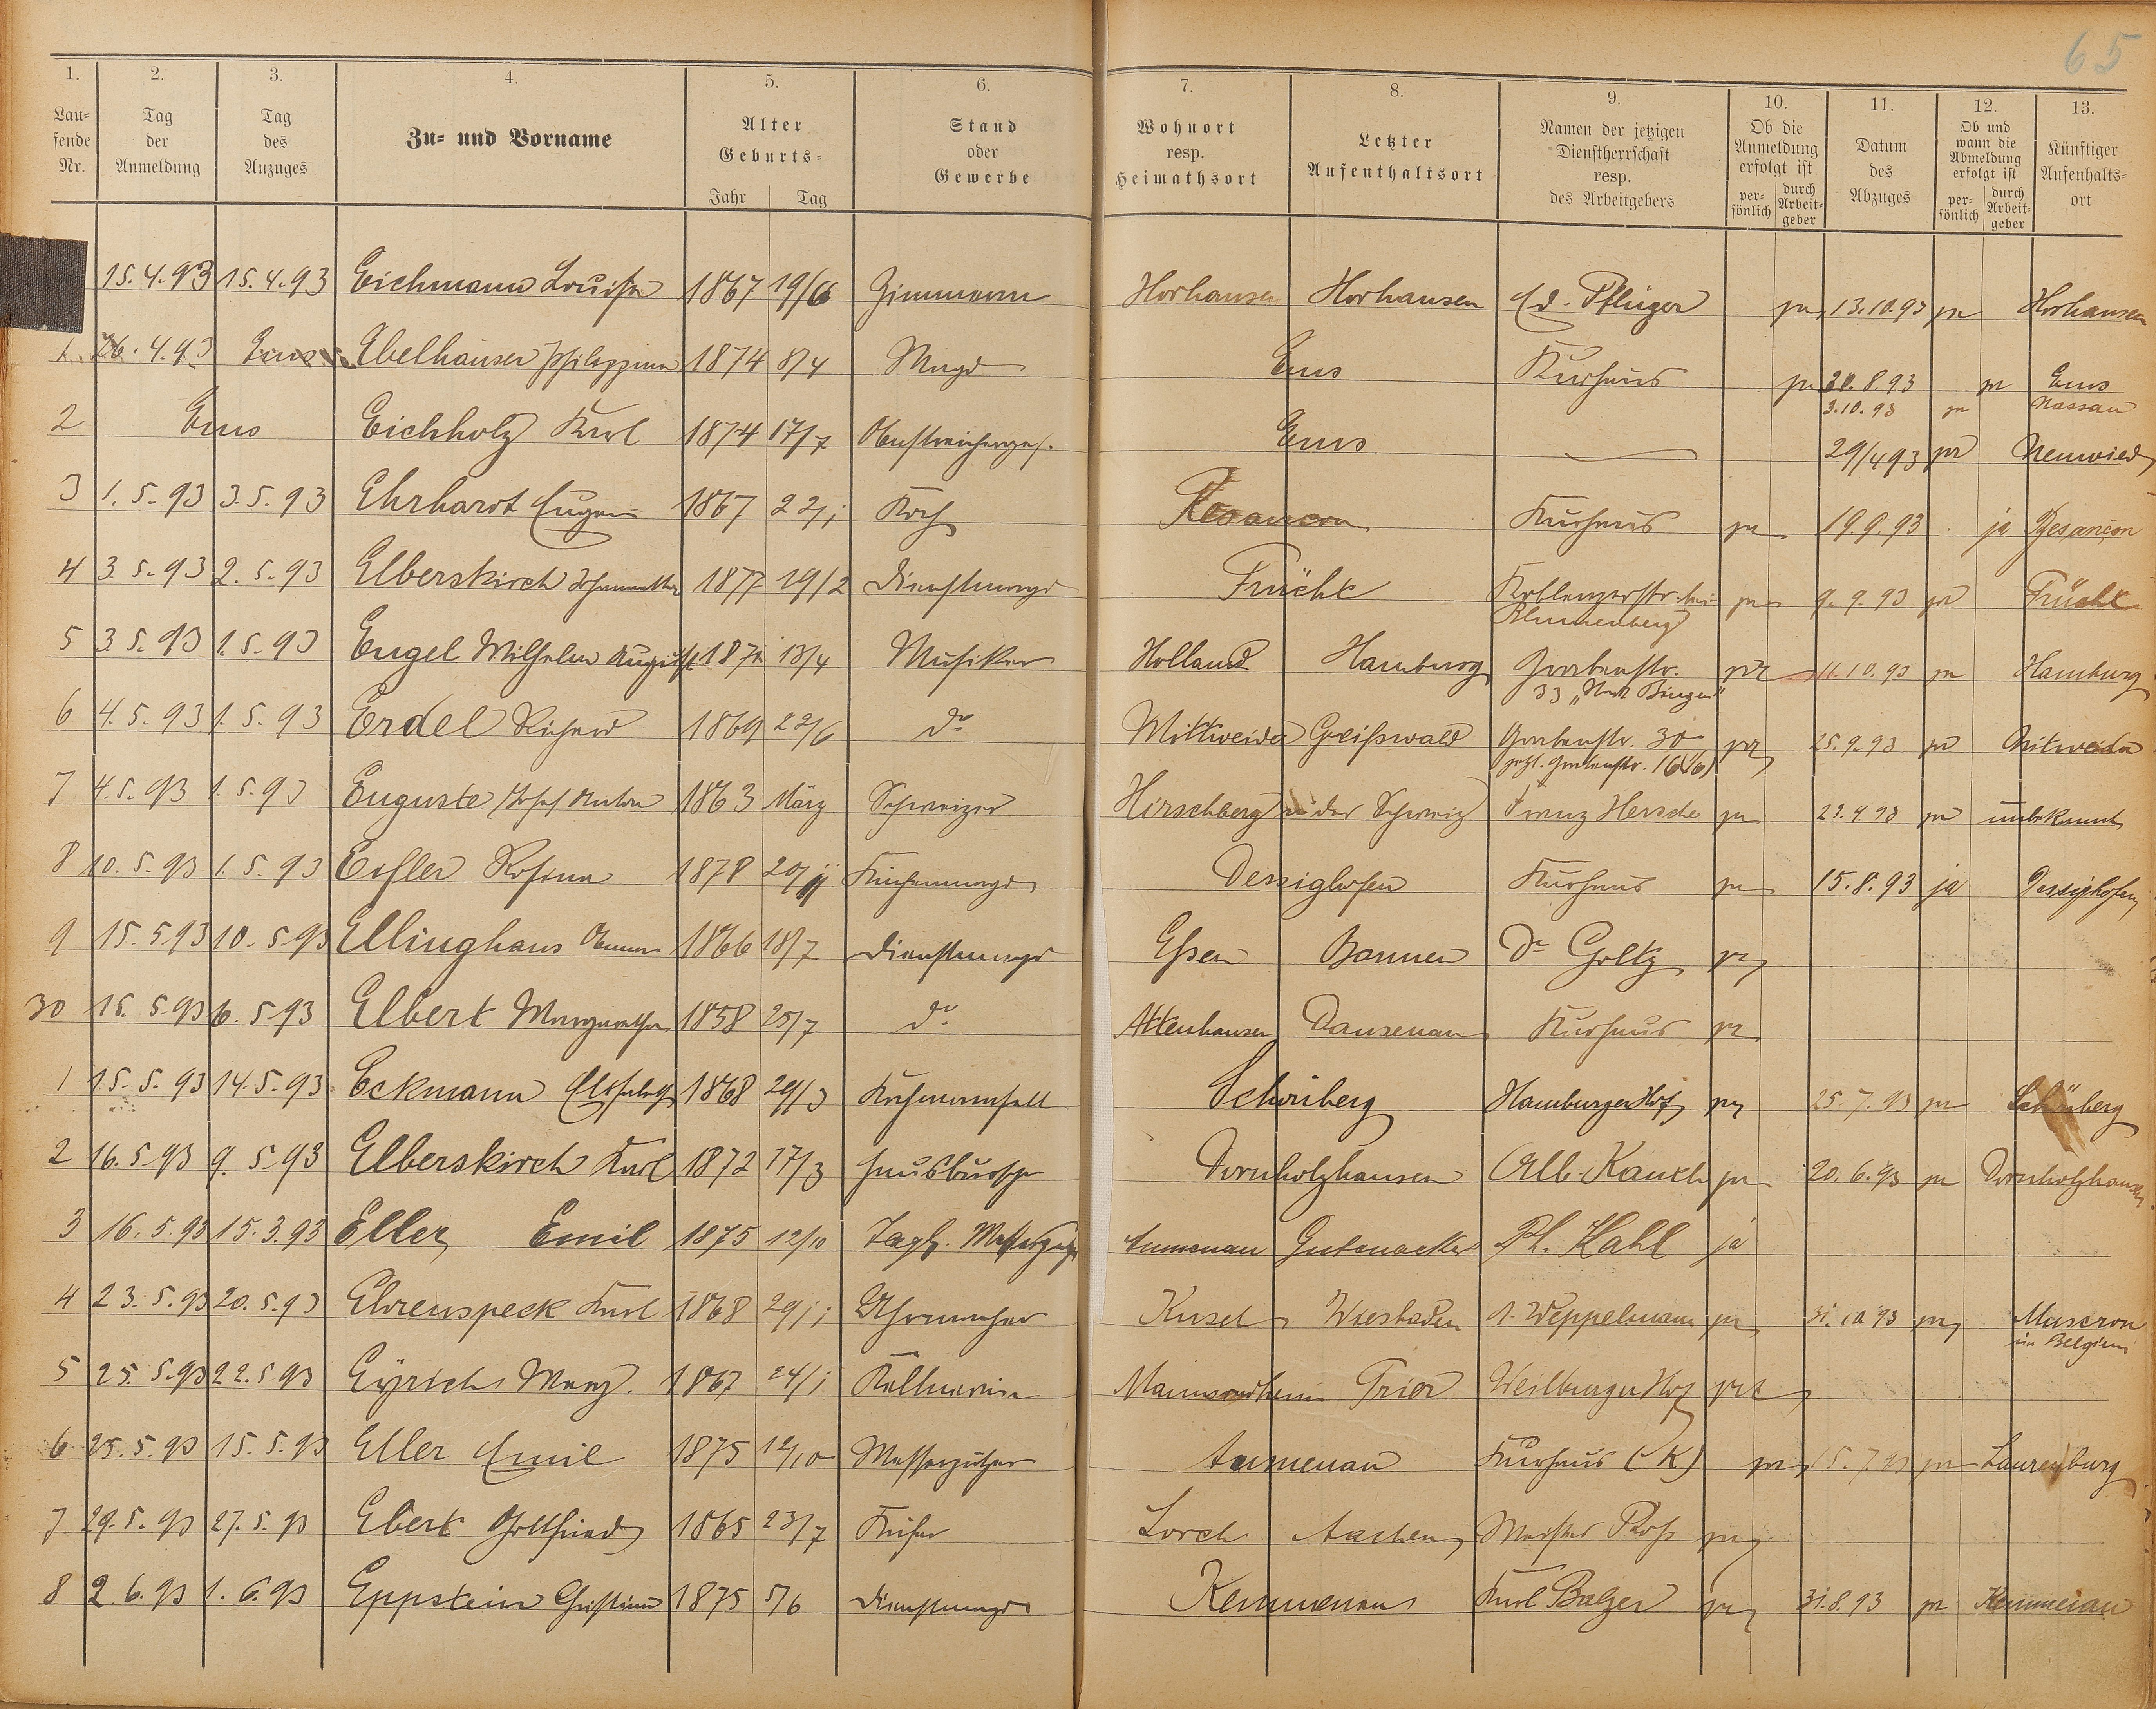 65
1. 2. 3. 4. 5. 6. 7. 8. 9. 10. 11. 12. 13.
Lau=
fende
Nr.
Tag
der
Anmeldung
Tag
des
Anzuges
Zu= und Vorname
Alter
Geburts=
Jahr Tag
Stand
oder
Gewerbe
Wohnort
resp.
Heimathsort
Letzter
Aufenthaltsort
Namen der jetzigen
Dienstherrschaft
resp.
des Arbeitgebers
Ob die
Anmeldung
erfolgt ist
per=
sönlich
durch
Arbeit=
geber
Datum
des
Abzuges
Ob und
wann die
Abmeldung
erfolgt ist
per=
sönlich
durch
Arbeit=
geber
Künftiger
Aufenhalts=
ort
15.4.93 15.4.93 Eichmann Louise 1867 19/6 Horhausen Horhausen Ed. Pflüger ja 13.10.93 ja Horhausen
1. 26.4.93 Ems Ebelhäuser Philippine 1874 8/4 Magd Ems Kurhaus ja 20.8.93 ja Ems
3.10.93 ja Nassau
2 Ems Eichholz Karl 1874 17/7 Ems 29/4 93 ja Neuwied
3 1.5.93 3.5.93 Ehrhardt Eugen 1867 22/1 Koch Besancon Kurhaus ja 19.9.93 ja Besançon
4 3.5.93 2.5.93 Elberskirch 1877 19/2 Dienstmagd Frücht Koblenzerstr. bei ja 9.9.93 ja Frücht
Blumenberg
5 3.5.93 1.5.93 Engel Wilhelm August 13/4 Musiker Holland Hamburg Grabenstr. ja 11.10.93 ja Hamburg
33 „Stadt Bingen"
6 4.5.93 1.5.93 Erdel Richard 1869 22/6 do Mittweida Greifswald Grabenstr. 30 ja 25.9.93 ja Mitweida
jetzt. Grabenstr. 16
7 4.5.93 1.5.93 Euguste Josef Anton 1863 März Schweizer Hirschberg in der Schweiz Franz Hersche ja 23.9.93 ja unbekannt
8 10.5.93 1.5.93 Rosina 1878 20/11 Küchenmagd Dessighofen Kurhaus ja 15.8.93 ja Dessighofen
9 15.5.93 10.5.93 Ellinghaus 1866 18/7 Dienstmagd Essen Barmen Dr Goltz ja
30 15.5.93 6.5.93 Elbert Margaretha 1858 25/7 do Attenhausen Dausenau Kurhaus ja
1 15.5.93 14.5.93 Eckmann Elisabeth 1868 29/3 Kochmamsell Schönberg Hamburger Hof ja 25.7.93 ja Schönberg
2 16.5.93 9.5.93 Elberskirch Karl 1872 17/3 Hausbursche Dornholzhausen Alb. Kauth ja 20.6.93 ja Dornholzhausen
3 16.5.93 15.3.93 Eller Emil 1875 12/10 Tagl. Aumenau Gutenacker Ph. Kahl ja
4 23.5.93 20.5.93 Ehrenspeck Karl 1868 29/1 Uhrmacher Kusel Wiesbaden A. Weppelmann ja 31.10.93 ja Muscron
in Belgien
5 25.5.93 22.5.93 Eyrich Marg. 1867 24/1 Kellnerin Mainsondheim Trier Weilburger Hof ja
6 25.5.93 15.5.93 Eller Emil 1875 12/10 Messerputzer Aumenau Kurhaus (K) ja 15.7.93 ja Laurenburg
7 29.5.93 27.5.93 Ebert Gottfried 1865 23/7 Küfer Lorch Aachen Meister ja
8 2.6.93 1.6.93 Eppstein Christine 1875 5/6 Dienstmagd Kemmenau Karl Balzer ja 31.8.93 ja Kemmenau